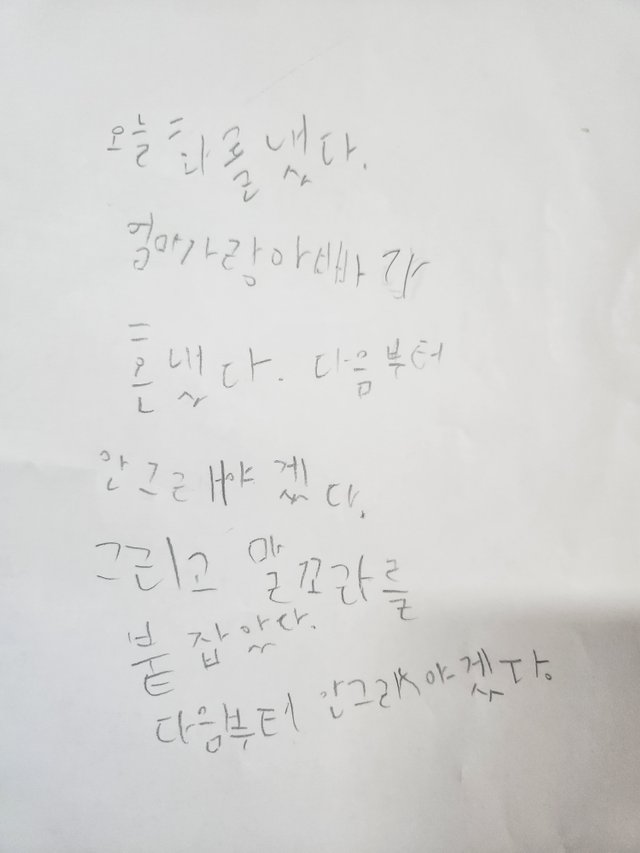 오늘 화를 냈다.
엄마가랑아빠가
혼냈다. 다음부터
안그래야겠다.
그리고 말꼬라를
붙잡았다.
다음부터 안그래야겠다.